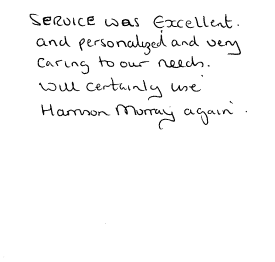 SERVICE was Excellent.
and personalized and very
caring to our needs.
will certainly use
Harrison Murray again.